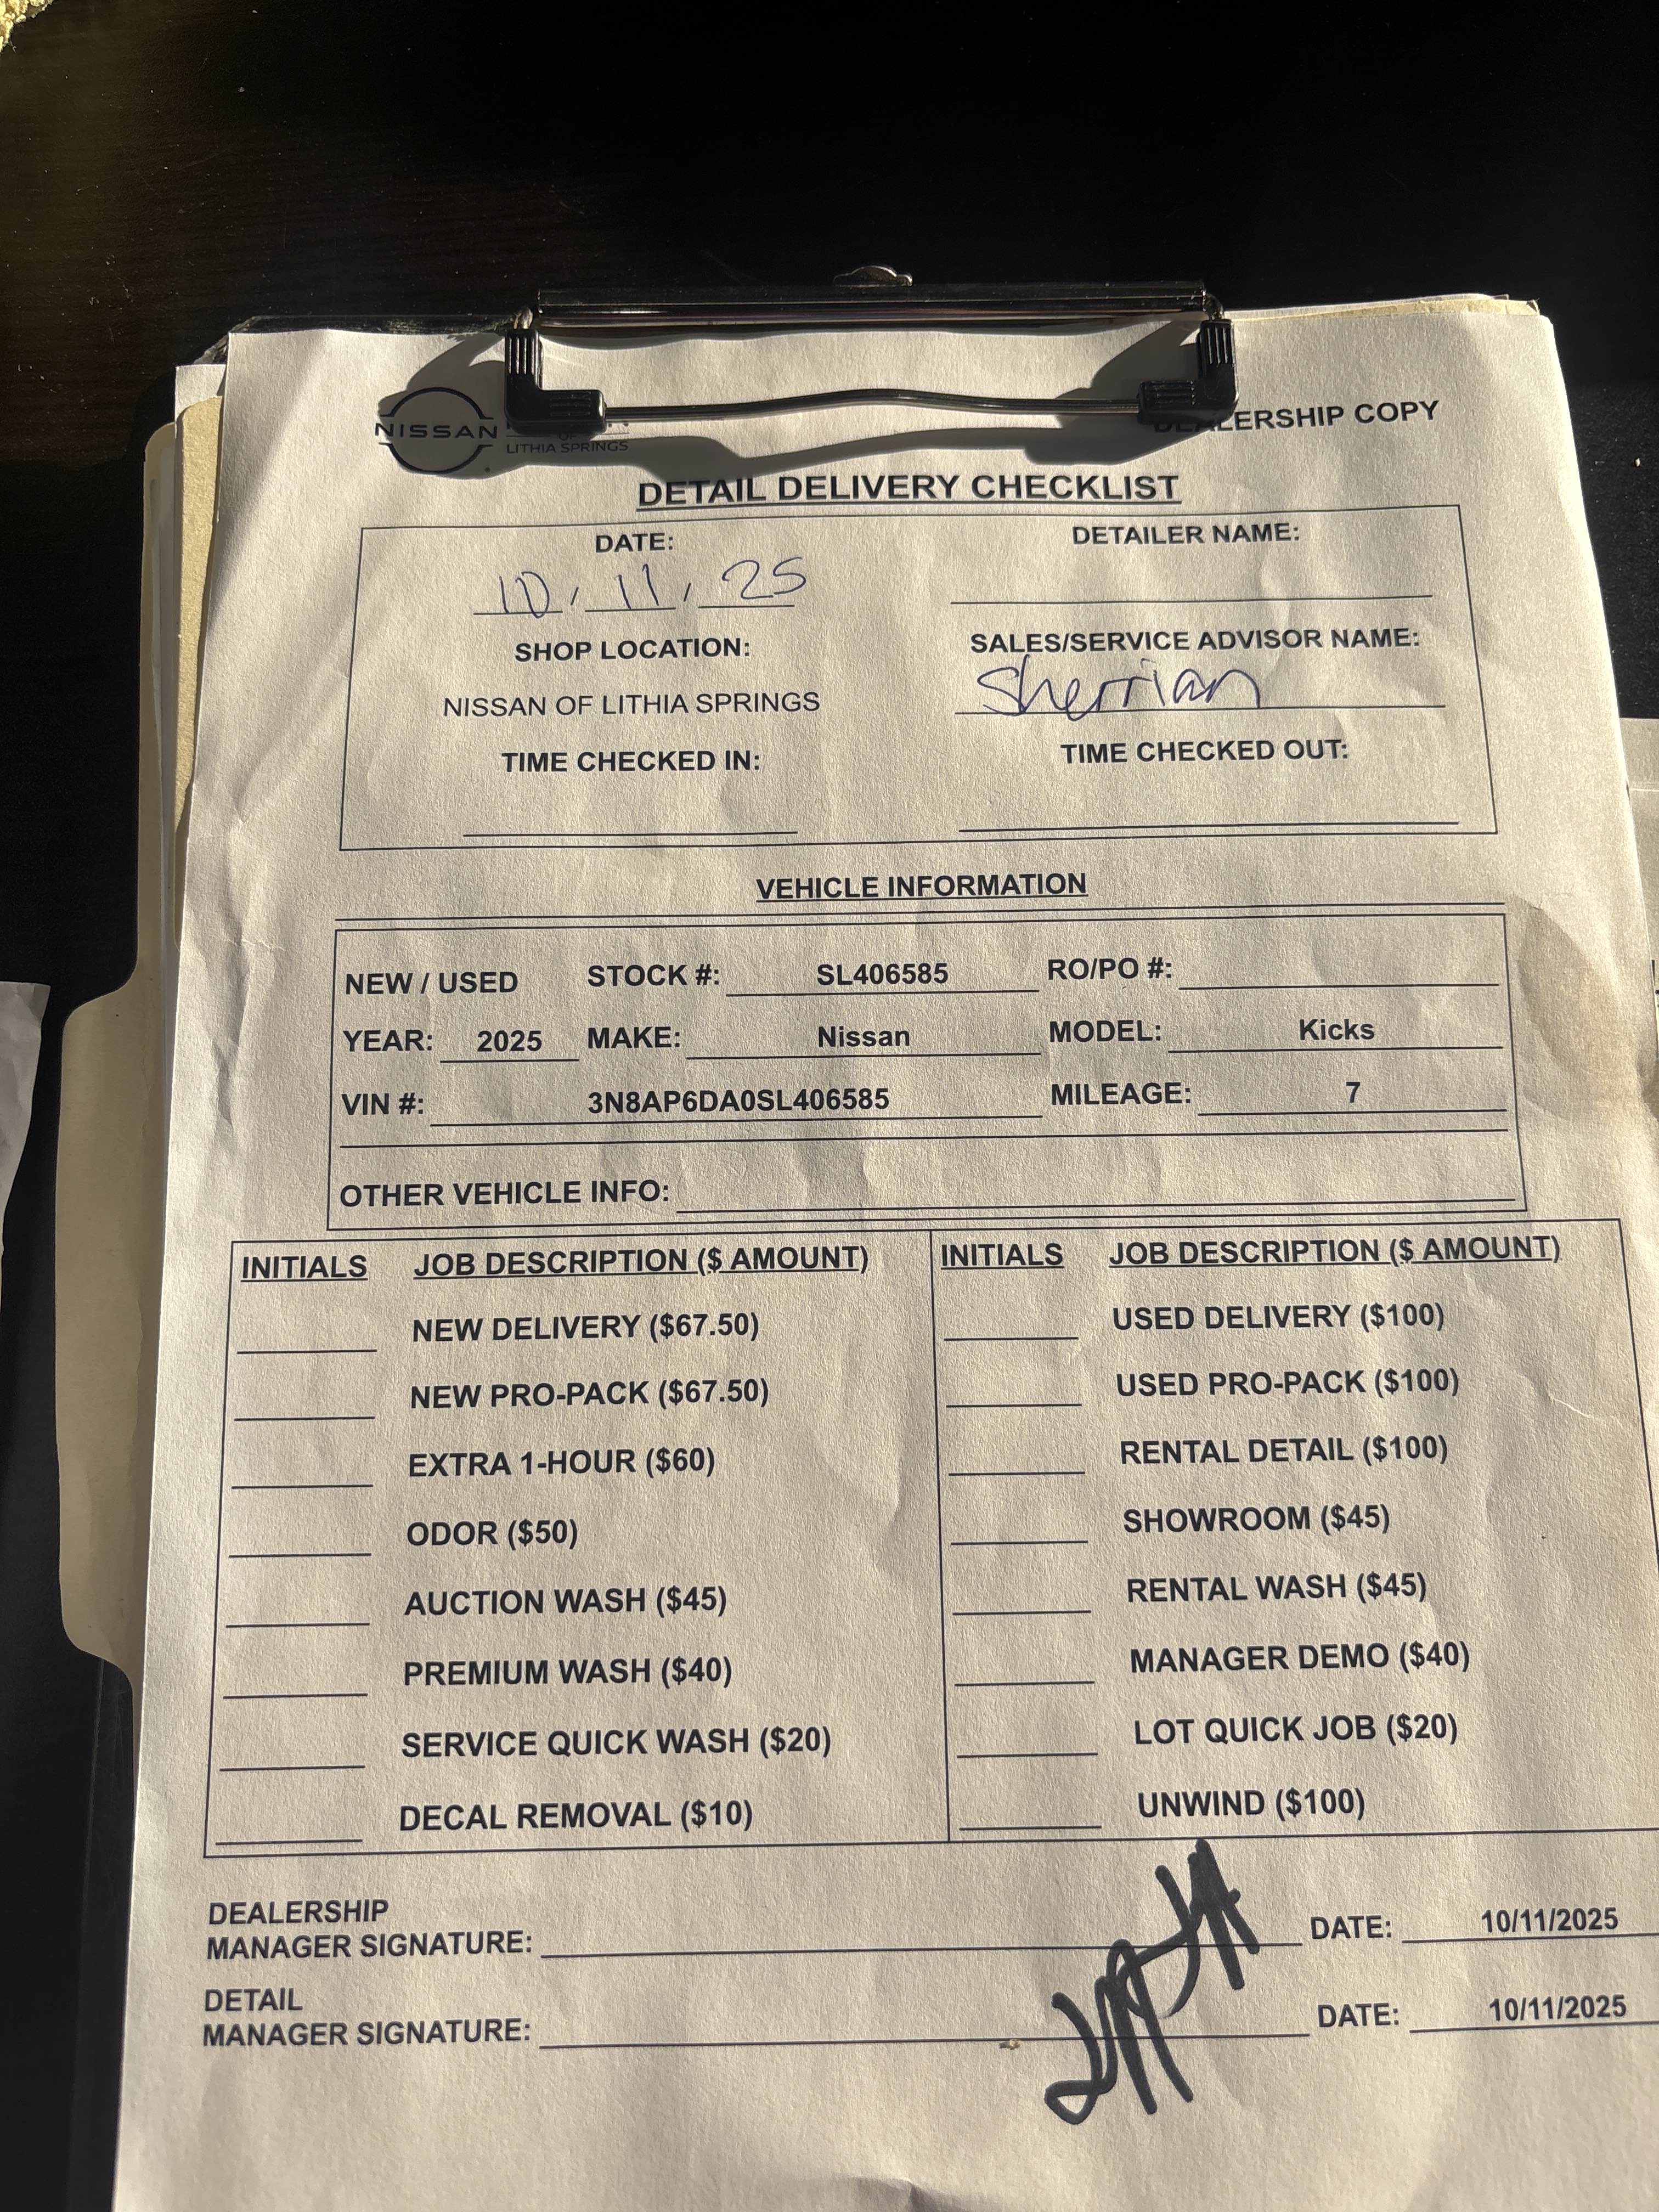 NISSAN
LITHIA SPRINGS
DEALERSHIP COPY
DETAIL DELIVERY CHECKLIST
DATE:
10, 11, 25
DETAILER NAME:
SHOP LOCATION:
NISSAN OF LITHIA SPRINGS
SALES/SERVICE ADVISOR NAME:
Sherrian
TIME CHECKED IN:
TIME CHECKED OUT:
VEHICLE INFORMATION
NEW / USED STOCK #: SL406585 RO/PO #:
YEAR: 2025 MAKE: Nissan MODEL: Kicks
VIN #: 3N8AP6DA0SL406585 MILEAGE: 7
OTHER VEHICLE INFO:
INITIALS JOB DESCRIPTION ($ AMOUNT)
NEW DELIVERY ($67.50)
NEW PRO-PACK ($67.50)
EXTRA 1-HOUR ($60)
ODOR ($50)
AUCTION WASH ($45)
PREMIUM WASH ($40)
SERVICE QUICK WASH ($20)
DECAL REMOVAL ($10)
INITIALS JOB DESCRIPTION ($ AMOUNT)
USED DELIVERY ($100)
USED PRO-PACK ($100)
RENTAL DETAIL ($100)
SHOWROOM ($45)
RENTAL WASH ($45)
MANAGER DEMO ($40)
LOT QUICK JOB ($20)
UNWIND ($100)
DEALERSHIP
MANAGER SIGNATURE: DATE: 10/11/2025
DETAIL
MANAGER SIGNATURE: DATE: 10/11/2025